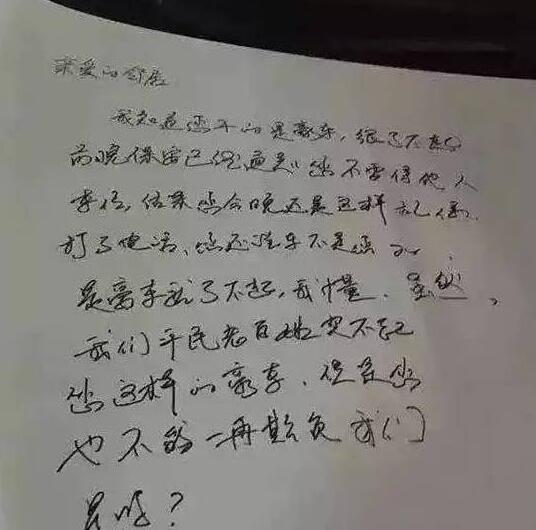 亲爱的邻居
我知道您开的是豪车,很了不起。
前晚保安已经通知您不要停他人
车位,结果您今晚还是这样
打了电话,您还说车不是您
是豪车就了不起,我懂,虽然,
我们平民老百姓买不起
您这样的豪车,但是您
也不能一再欺负我们
是吗?